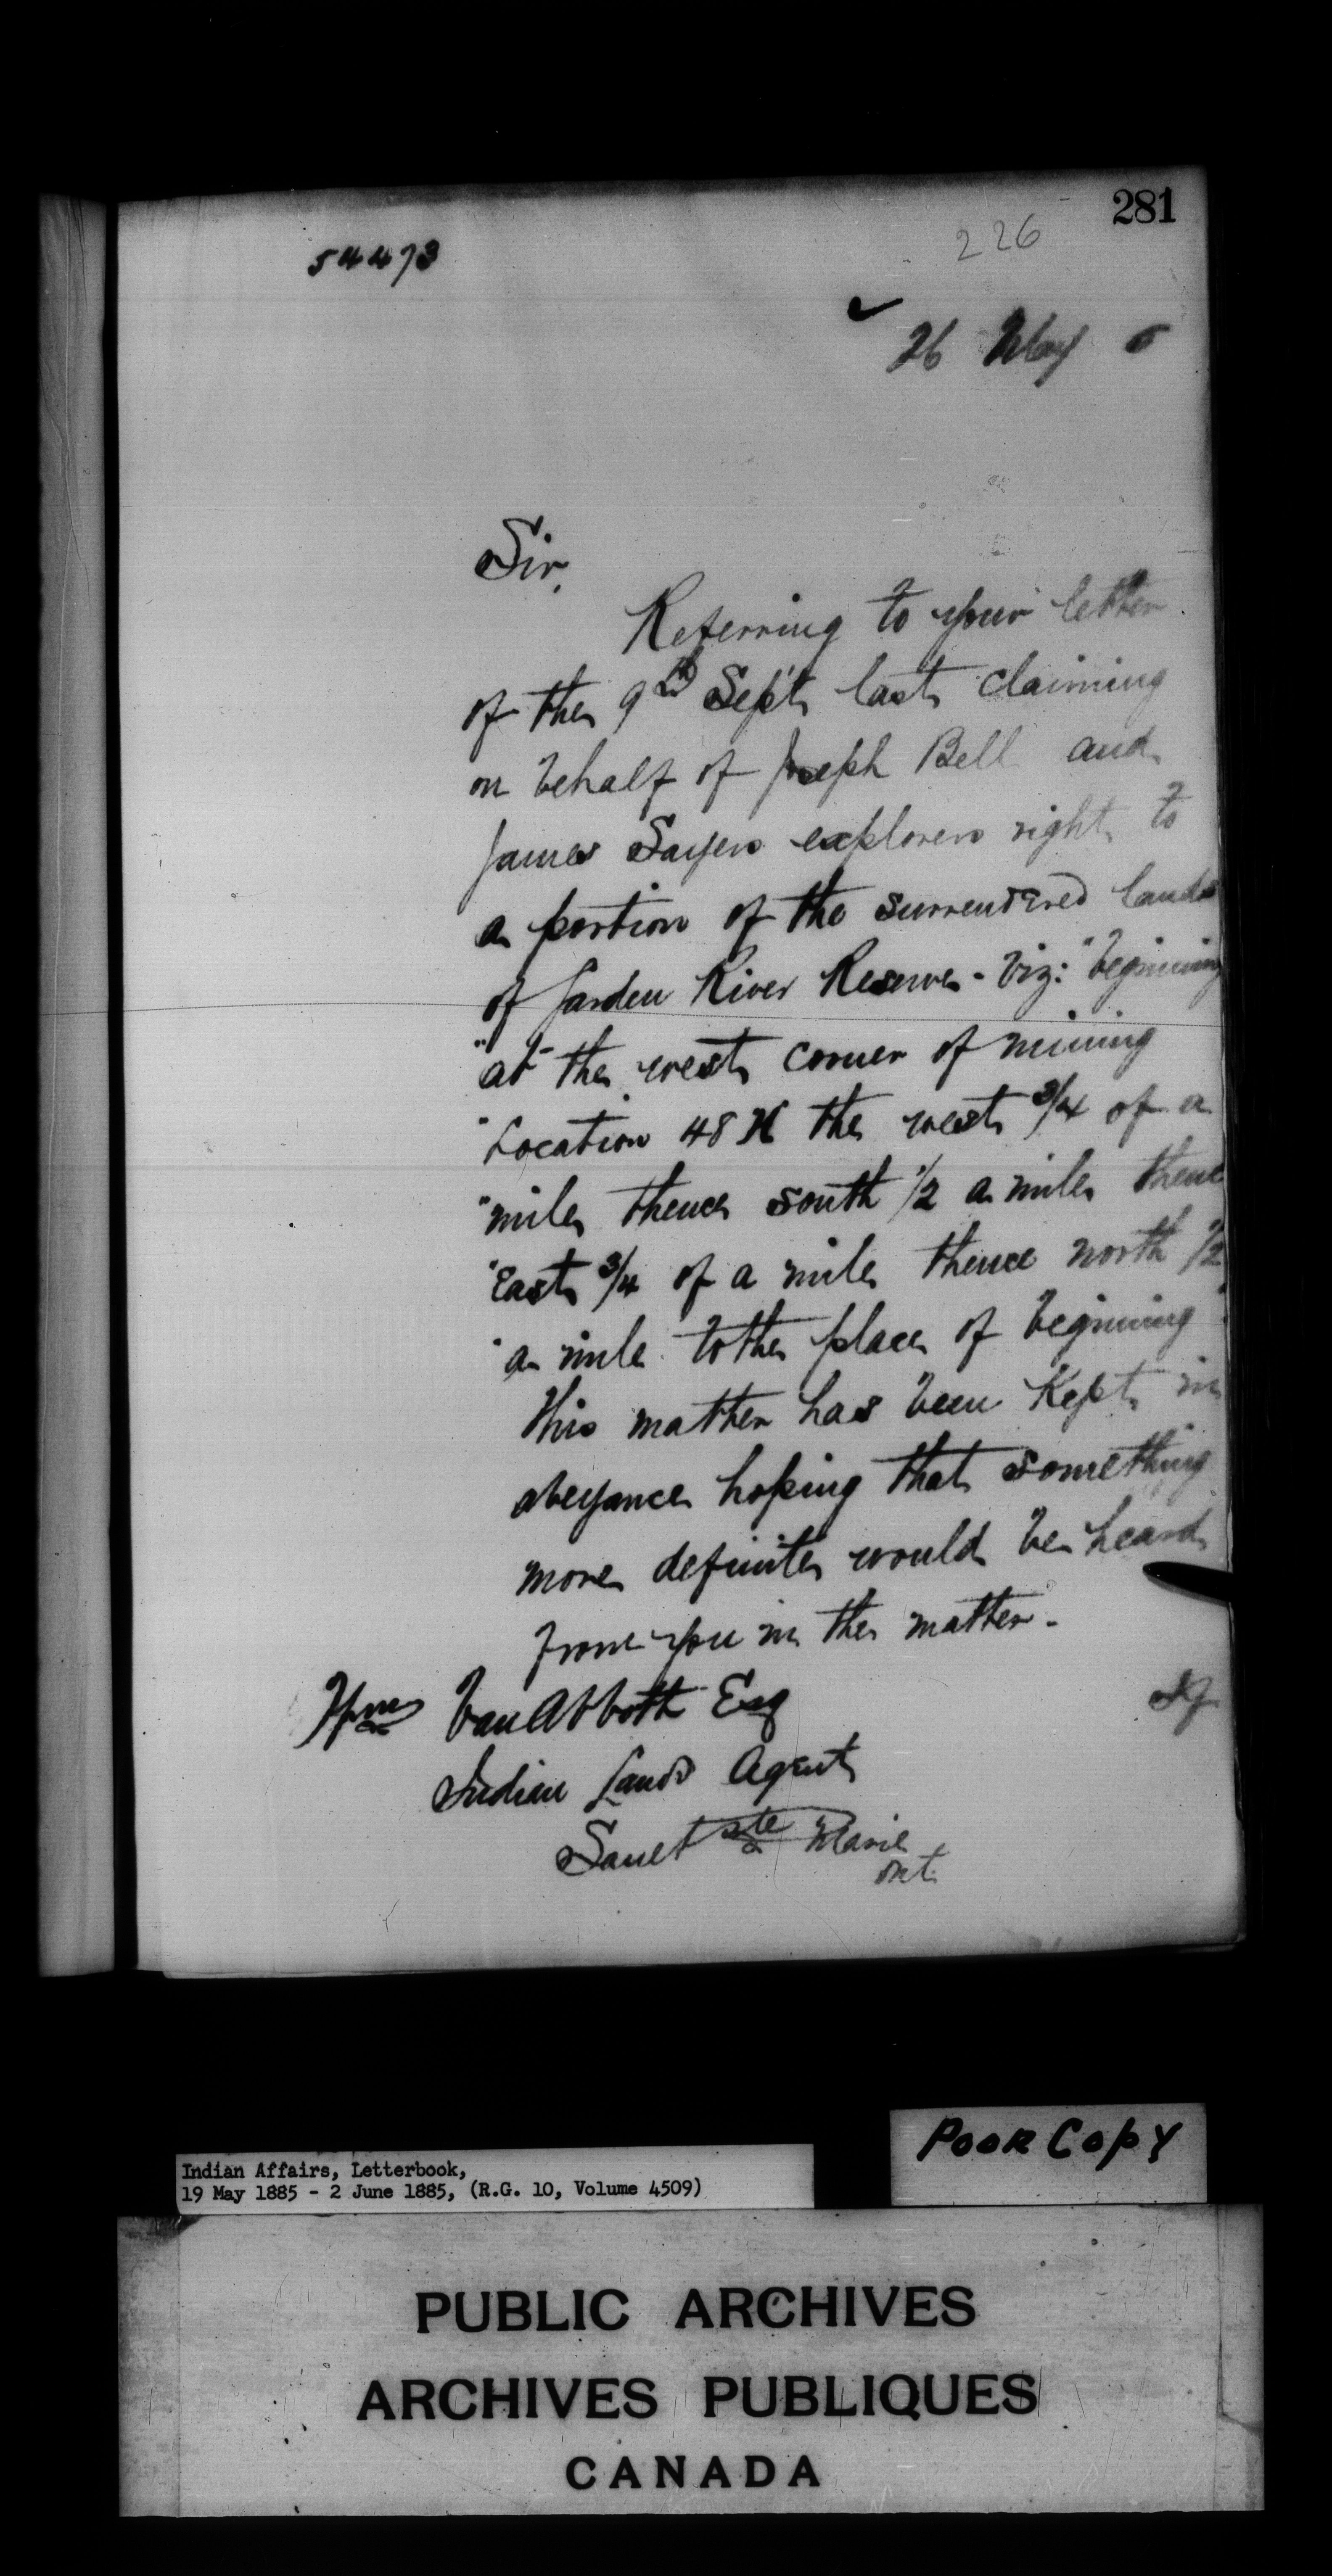 281
226
54473
26 May 5
Sir,
Referring to your letter
of the 9th Sept. last claiming
on behalf of Joseph Bell and
James Sayers explorers right to
a portion of the surrendered lands
of Garden River Reserve - viz: "beginning
"at the west corner of mining
"Location 48 the west 3/4 of a
"mile thence south 1/2 a mile thence
"East 3/4 of a mile thence north 1/2
"a mile to the place of beginning".
This matter has been kept in
abeyance hoping that something
more definite would be heard
from you in the matter -
Wm Van Abbott Esq
Indian Lands Agent
Sault Ste Marie
Ont.
Poor Copy
Indian Affairs, Letterbook,
19 May 1885 - 2 June 1885, (R.G. 10, Volume 4509)
PUBLIC ARCHIVES
ARCHIVES PUBLIQUES
CANADA